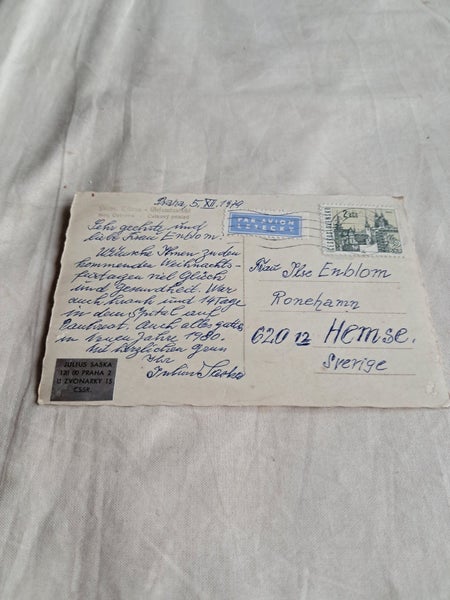 Praha, 5. XII. 1979
Sehr geehrte und
liebe Frau Enblom.
Wünsche Ihnen zu den
kommenden Weihnachts
festagen viel Glück
und Gesundheit. War
auch krank und 14 Tage
in dem Spital auf
Auch alles gute
in neuen Jahre 1980.
Mit herzlichen
Ihr
Julius Saska
JULIUS SASKA
120 00 PRAHA 2
U ZVONARKY 15
ČSSR.
PAR AVION
LETECKY
ČESKOSLOVENSKO
2 Kčs
Frau Ilse Enblom
Ronehamn
620 12 Hemse.
Sverige